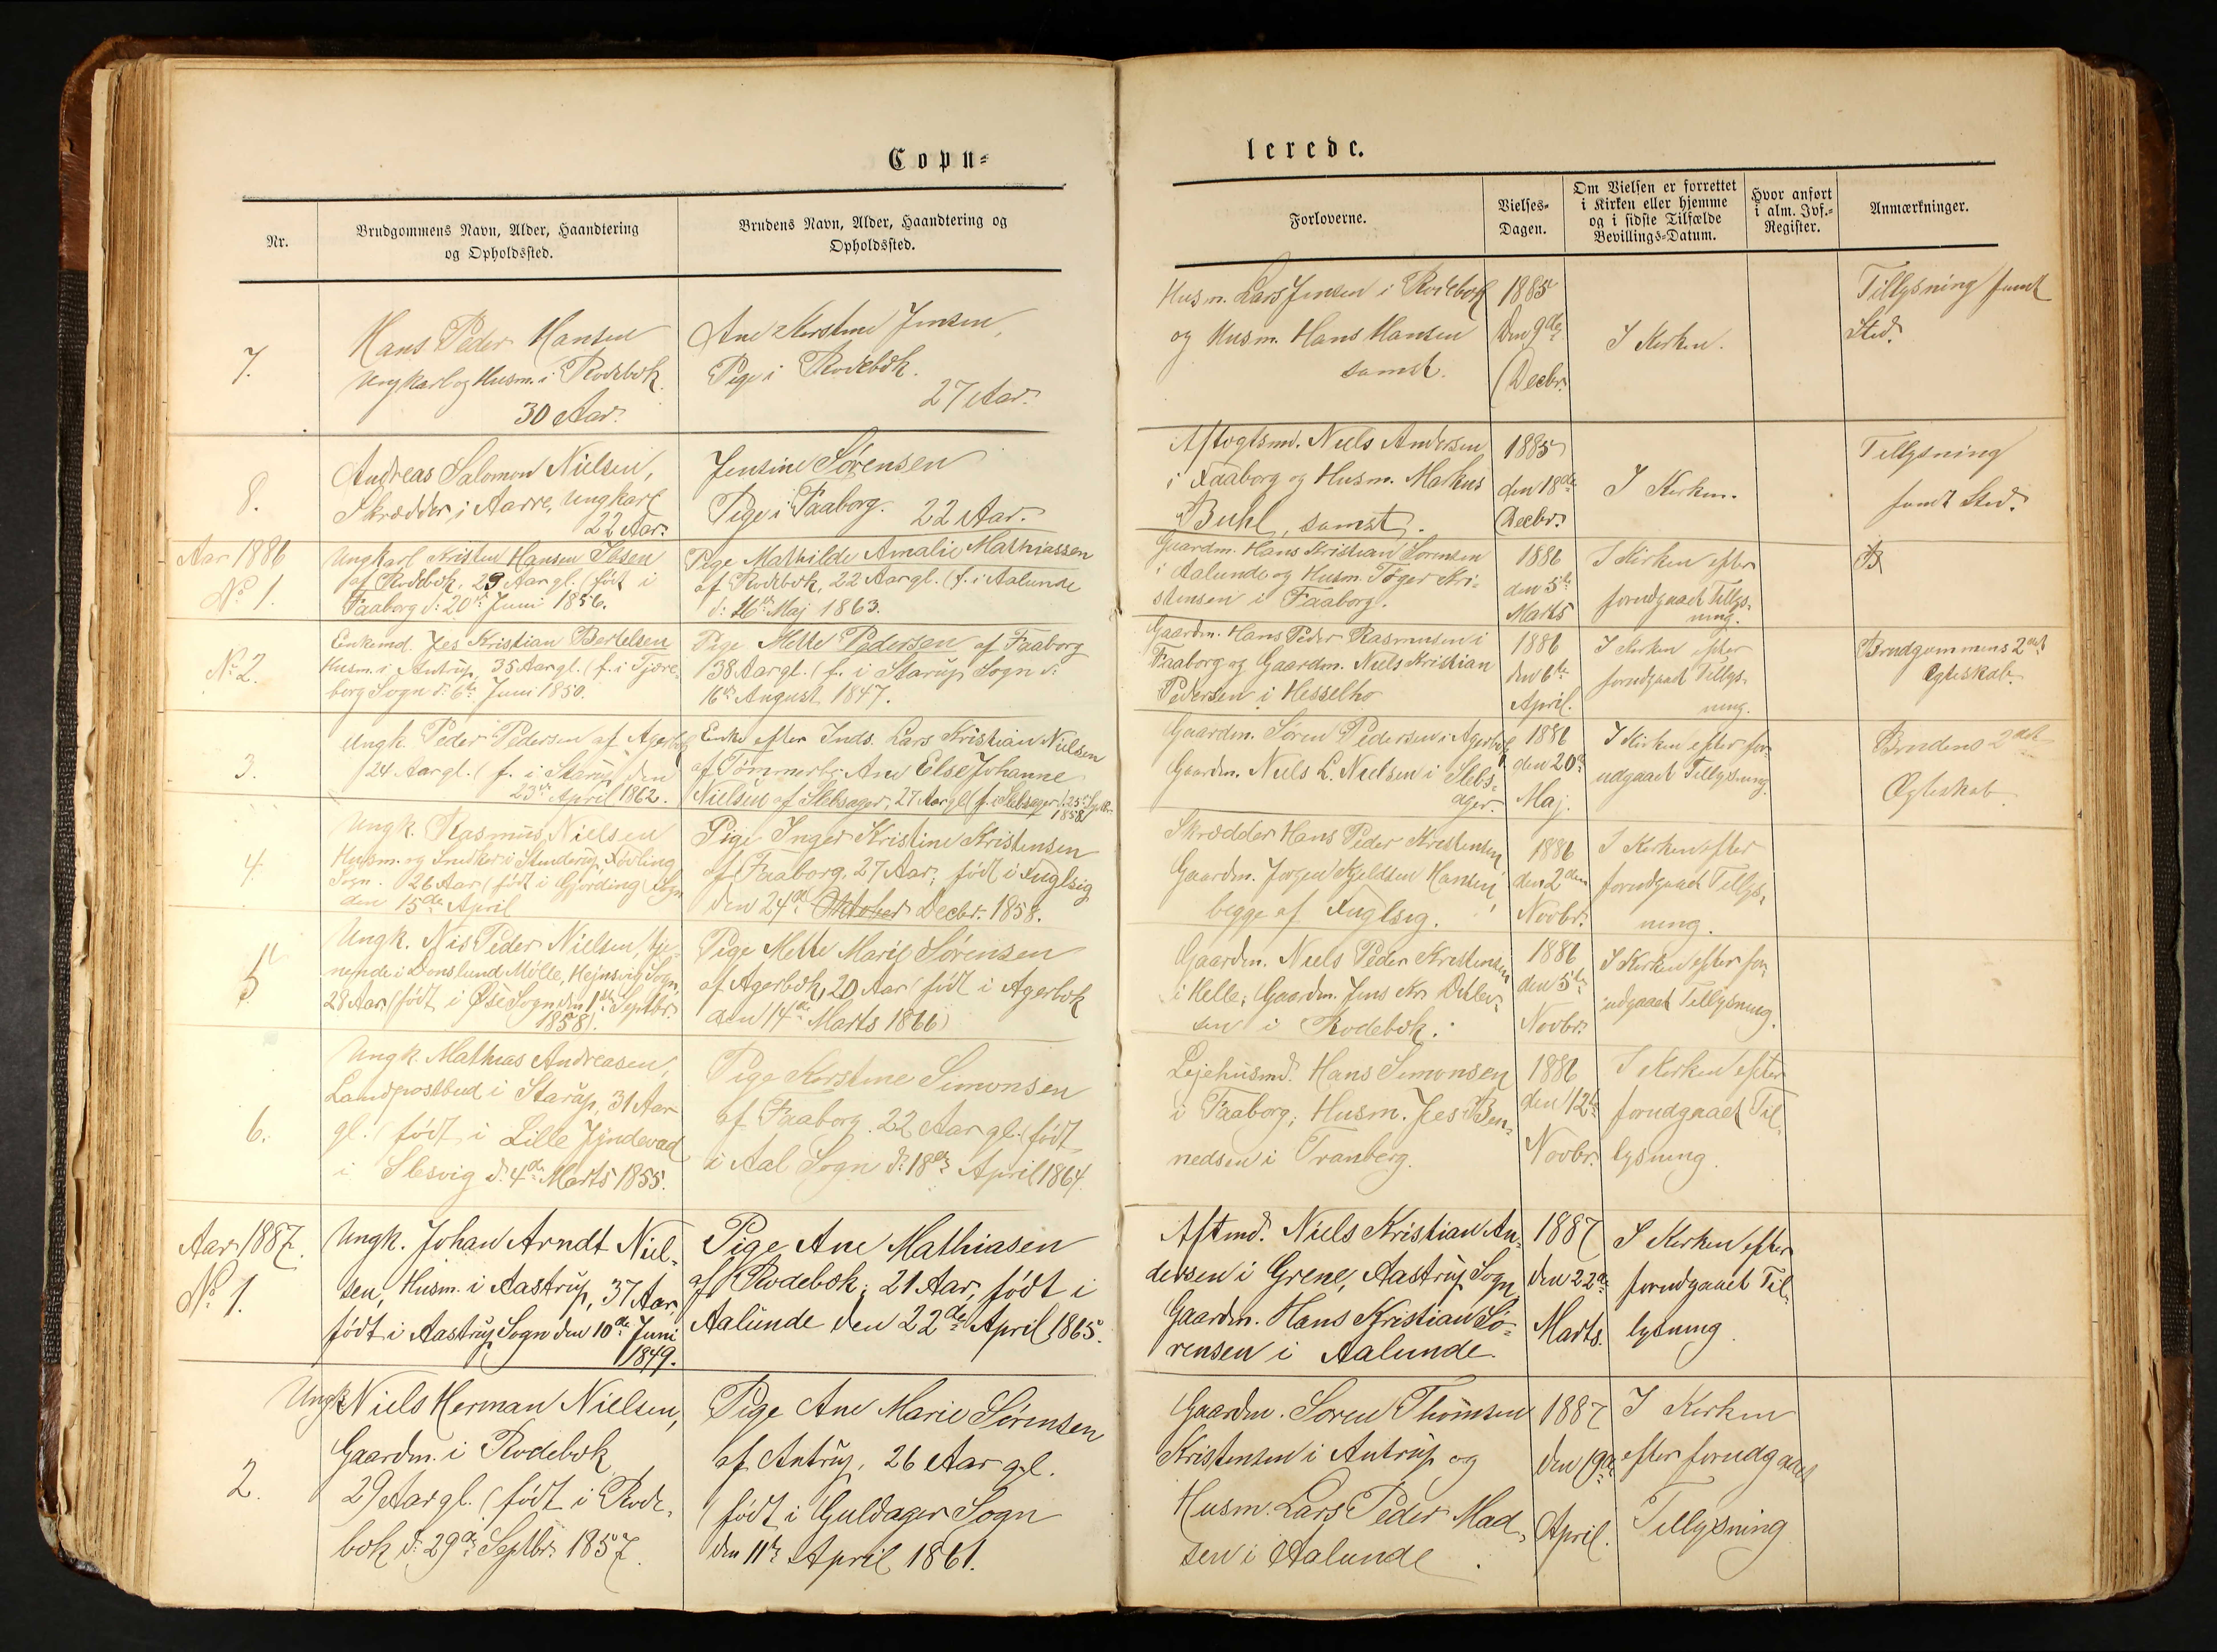 Copu=
lerede.
Nr.
Brudgommens Navn, Alder, Haandtering
og Opholdssted.
Brudens Navn, Alder, Haandtering og
Opholdssted.
Forloverne.
Vielses=
Dagen.
Om Vielsen er forrettet
i Kirken eller hjemme
og i sidste Tilfælde
Bevillings=Datum.
Hvor anført
i alm. Jvf.=
Register.
Anmærkninger.
7.
Hans Peder Hansen
Ungkarl og Husm. i Rodebæk
30 Aar.
Ane Kirstine Jensen,
Pige i Rodebæk.
27 Aar.
Husm. Lars Jensen i Rodebæk
og Husm. Hans Hansen
samst.
1885
den 9de
Decbr.
I Kirken.
Tillysning samt
Sted.
8.
Andreas Salomon Nielsen,
Skrædder i Aarre, Ungkarl
22 Aar.
Jensine Sørensen
Pige i Faaborg. 22 Aar.
Aftægtsmd. Niels Andersen
i Faaborg og Husm. Markus
Buhl, samst.
1885
den 18de
Decbr.
I Kirken.
Tillysning
samt Sted.
Aar 1886
No 1.
Ungkarl Kristen Hansen Ibsen
af Rodebæk, 29 Aar gl. (født i
Faaborg d: 20de Juni 1856.
Pige Mathilde Amalie Mathiassen
af Rodebæk, 22 Aar gl. (f. i Aalunde
d: 26de Maj 1863.
Gaardm. Hans Kristian Sørensen
i Aalunde og Husm. Tøger Kri-
stensen i Faaborg.
1886
den 5te
Marts
I Kirken efter
forudgaaet Tillys-
ning.
No 2.
Enkemd. Jes Kristian Bertelsen
Husm. i Antrup, 35 Aar gl. (f. i Tjære-
borg Sogn d: 6te Juni 1850.
Pige Mette Pedersen af Faaborg
38 Aar gl. (f. i Starup Sogn d:
16de August 1847.
Gaardm. Hans Peder Rasmussen i
Faaborg og Gaardm. Niels Kristian
Pedersen i Hesselho
1886
den 6te
April.
I Kirken efter
forudgaaet Tillys-
ning.
Brudgommens 2det
Ægteskab.
3.
Ungk. Peder Pedersen af Agerbæk
24 Aar gl. (f. i Starup den
23de April 1862.
Enke efter Inds. Lars Kristian Nielsen
af Tømmerby Ane Else Johanne
Nielsen af Slebsager, 27 Aar gl. (f. i Slebsager d. 25de Septbr.
1858)
Gaardm. Søren Pedersen i Agerbæk
Gaardm. Niels L. Nielsen i Slebs-
ager.
1886
den 20de
Maj.
I Kirken efter for-
udgaaet Tillysning.
Brudens 2det
Ægteskab
4.
Ungk. Rasmus Nielsen
Husm. og Snedker i Stenderup, Føvling
Sogn. 26 Aar (født i Gjørding Sogn
den 15de April
Pige Inger Kristine Kristensen
af Faaborg, 27 Aar, født i Fuglsig
den 24de Oktober Decbr. 1858.
Skrædder Hans Peder Kristensen
Gaardm. Jørgen Kjeldsen Hansen,
begge af Fuglsig.
1886
den 2den
Novbr.
I Kirken efter
forudgaaet Tillys-
ning.
5
Ungk. Nis Peder Nielsen, tje-
nende i Donslund Mølle, Hejnsvig Sogn,
28 Aar (født i Øse Sogn den 1ste Septbr.
1858).
Pige Mette Marie Sørensen
af Agerbæk, 20 Aar (født i Agerbæk
den 14de Marts 1866)
Gaardm. Niels Peder Kristensen
i Helle; Gaardm. Jens Kr. Detlev-
sen i Rodebæk.
1886
den 5te
Novbr.
I Kirken efter for-
udgaaet Tillysning.
6.
Ungk. Mathias Andreasen,
Landpostbud i Starup, 31 Aar
gl. (født i Lille Jyndevad
i Slesvig d. 4de Marts 1855.
Pige Kirstine Simonsen
af Faaborg. 22 Aar gl. (født
i Aal Sogn d: 18de April 1864.
Lejehusmd. Hans Simonsen
i Faaborg; Husm. Jes Ben-
nedsen i Tranberg.
1886
den 12te
Novbr.
I Kirken efter
forudgaaet Til-
lysning.
Aar 1887.
No 1.
Ungk. Johan Arndt Niel-
sen, Husm. i Aastrup, 37 Aar,
født i Aastrup Sogn den 10de Juni
1849.
Pige Ane Mathiasen
af Rodebæk; 21 Aar, født i
Aalunde den 22de April 1865.
Aftmd. Niels Kristian An-
dersen i Grene, Aastrup Sogn
Gaardm. Hans Kristian Sø-
rensen i Aalunde.
1887
den 22de
Marts.
I Kirken efter
forudgaaet Til-
lysning.
2.
Ungk. Niels Herman Nielsen,
Gaardm. i Rodebæk
29 Aar gl. (født i Rode-
bæk d: 29de Septbr. 1857.
Pige Ane Marie Sørensen
af Antrup, 26 Aar gl.
(født i Guldager Sogn
den 11te April 1861.
Gaardm. Søren Thomsen
Kristensen i Antrup og
Husm. Lars Peder Mad-
sen i Aalunde.
1887
den 19de
April.
I Kirken
efter forudgaaet
Tillysning